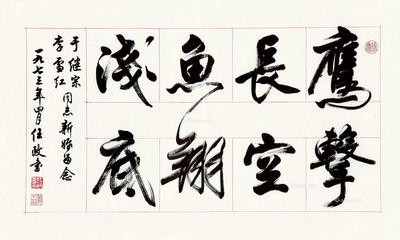 鷹擊
長空
魚翔
淺底
于继宗
李雪红 同志新婚留念
一九七三年四月 任政书